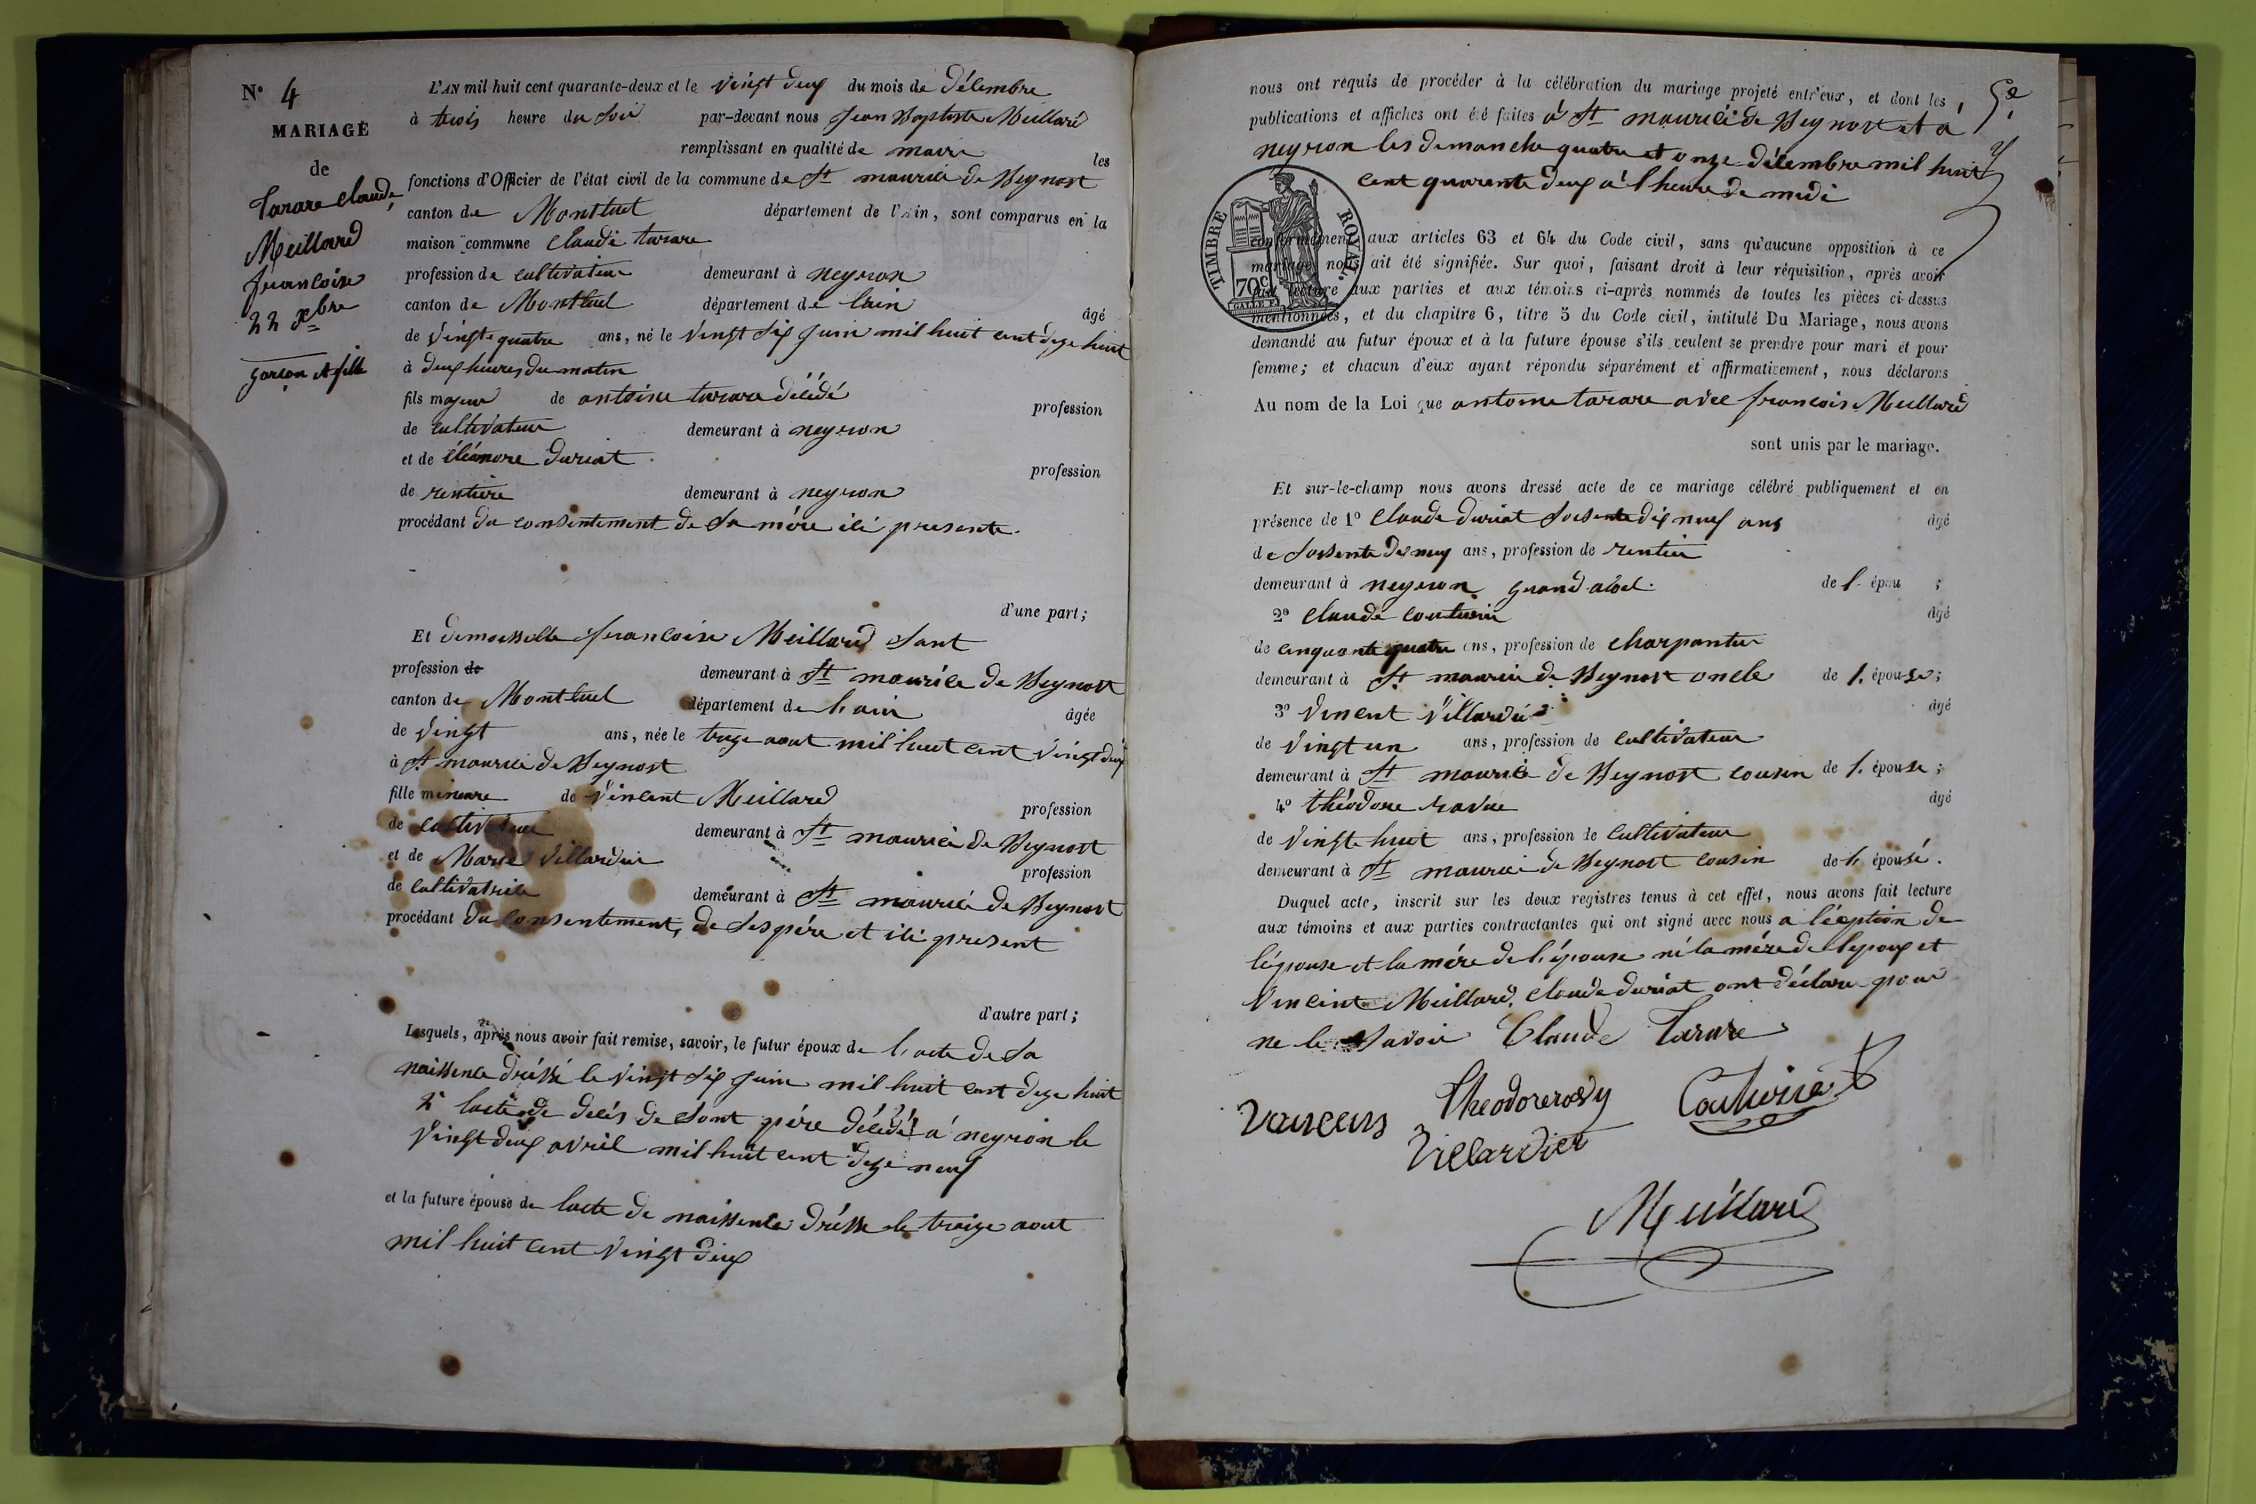 N° 4
MARIAGE
de
Tarare claude
Meillard
francoise
22 Xbre
garcon et fille
L'AN mil huit cent quarante-deux et le vingt deux du mois de décembre
à trois heure du soir par-devant nous Jean Baptiste Meillard
remplissant en qualité de maire les
fonctions d'Officier de l'état civil de la commune de St maurice de Beynost
canton de Montluel département de l'Ain, sont comparus en la
maison commune claude tarare
profession de cultivateur demeurant à neyron
canton de Montluel département de lain âgé
de vingt quatre ans, né le vingt six juin mil huit cent dize huit
à deux heures du matin
fils majeur de antoine tarare décédé profession
de cultivateur demeurant à neyron
et de éléonore duriat profession
de rentiere demeurant à neyron
procédant du consentement de sa mére ici presente.
d'une part;
Et demoiselle francoise Meillard sant
profession de demeurant à St maurice de Beynost
canton de Montluel département de l'ain âgée
de vingt ans, née le treze aout mil huit cent vingt deux
à St maurice de Beynost
fille mineure de vincent Meillard profession
de cultivateur demeurant à St maurice de Beynost
et de Marie villardier profession
de cultivatrice demeurant à St maurice de Beynost
procédant du consentement, de ses pére et ici present
d'autre part;
Lesquels, après nous avoir fait remise, savoir, le futur époux de l'acte de sa
naissence dréssé le vingt six juin mil huit cent dize huit
2° lacte de decés de sont pére décédé à neyron le
vingt deux avril mil huit cent dize neuf
et la future épouse de lacte de naissence drésse le traize aout
mil huit cent vingt deux
nous ont requis de procéder à la célébration du mariage projeté entr'eux, et dont les
publications et affiches ont été faites à St maurice de Beynost et à
neyron les demanche quatre et onze décembre mil huit
cent quarente deux à l'heure de midi
TIMBRE ROYAL.
70c
conformément aux articles 63 et 64 du Code civil, sans qu'aucune opposition à ce
mariage nous ait été signifiée. Sur quoi, faisant droit à leur réquisition, après avoir
fait lecture aux parties et aux témoins ci-après nommés de toutes les pièces ci-dessus
mentionnées, et du chapitre 6, titre 5 du Code civil, intitulé Du Mariage, nous avons
demandé au futur époux et à la future épouse s'ils veulent se prendre pour mari et pour
femme; et chacun d'eux ayant répondu séparément et affirmativement, nous déclarons
Au nom de la Loi que antoine tarare avec francoise Meillard
sont unis par le mariage.
Et sur-le-champ nous avons dressé acte de ce mariage célébré publiquement et en
présence de 1° claude duriat soisente dix neuf ans âgé
de soisente dix neuf ans, profession de rentier
demeurant à neyron grand de l' épou ;
2° claude couturier âgé
de cinquante quatre ans, profession de charpantier
demeurant à St maurice de Beynost oncle de l' épouse;
3° vincent villardier âgé
de vingt un ans, profession de cultivateur
demeurant à St maurice de Beynost cousin de l' épouse;
4° théodore âgé
de vingt huit ans, profession de cultivateur
demeurant à St maurice de Beynost cousin de l' épousé.
Duquel acte, inscrit sur les deux registres tenus à cet effet, nous avons fait lecture
aux témoins et aux parties contractantes qui ont signé avec nous a léxption de
lépouse et la mére de l'épouse ni la mére de lepoux et
vincint Meillard, claude duriat ont déclaré pour
ne le savoir Claude Tarare
Villardier
Meillard